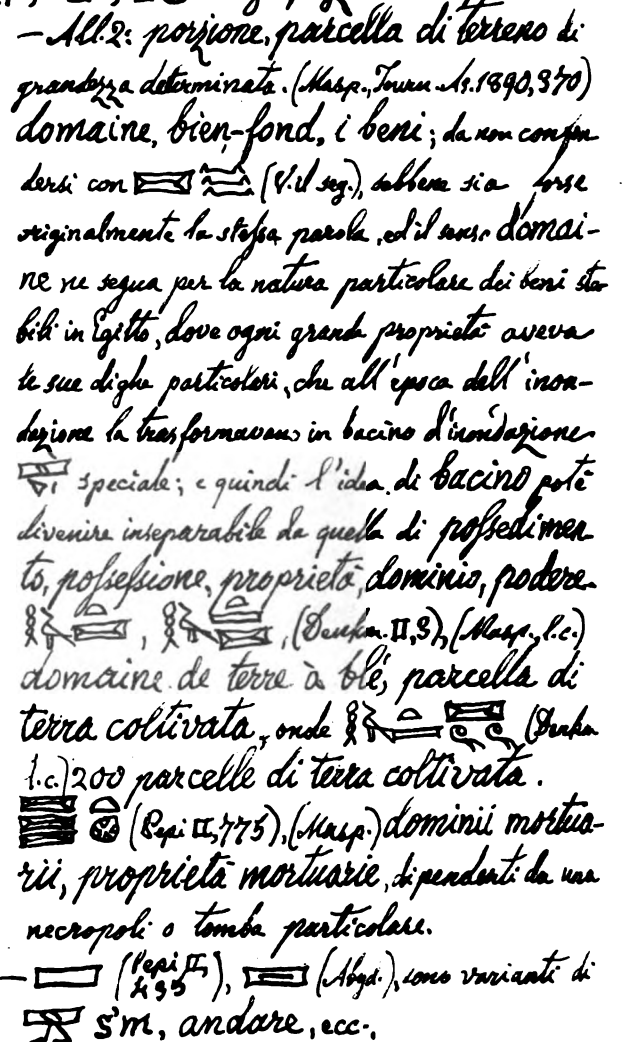 — All.2: porzione, parcella di terreno di
grandezza determinata. (Masp., Journ. As. 1890, 370)
domaine, bien-fond, i beni; da non confon
dersi con (V. il seg.), sebbene sia forse
originalmente la stessa parola, ed il senso domai-
ne ne segua per la natura particolare dei beni sta
bili in Egitto, dove ogni grande proprietà aveva
le sue dighe particolari, che all'epoca dell'inon-
dazione la trasformavano in bacino d'inondazione
speciale; e quindi l'idea di bacino potè
divenire inseparabile da quella di possedimen
to, possessione, proprietà, dominio, podere.
, , (Denkm. II,3), (Masp., l.c.)
domaine de terre à blé, parcella di
terra coltivata, onde (Denkm.
l.c.) 200 parcelle di terra coltivata.
(Pepi II, 775), (Masp.) dominii mortua-
rii, proprietà mortuarie, dipendenti da una
necropoli o tomba particolare.
— (Pepi II, 495), (Abyd.), sono varianti di
s'm, andare, ecc.,